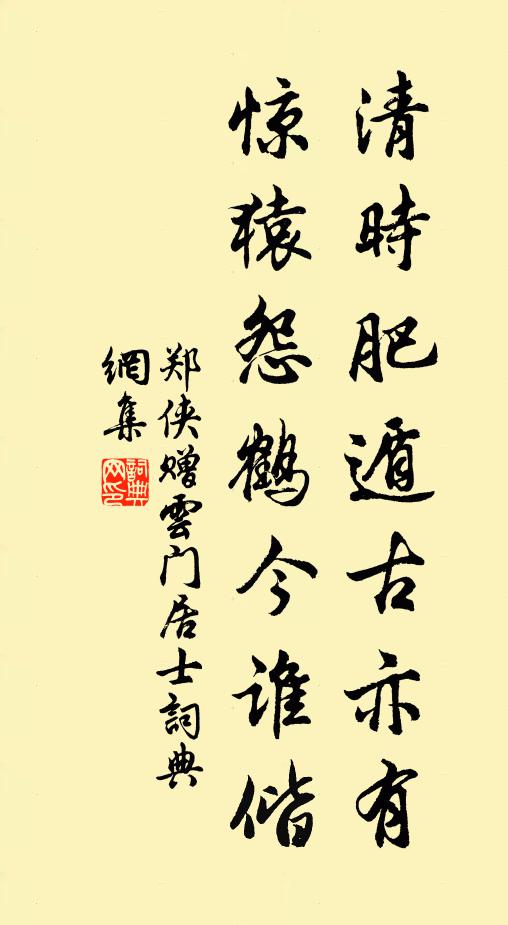 清時肥遁古亦有
惊猿怨鶴今谁偕
郑侠赠雲门居士詞典
網集
詞典網印